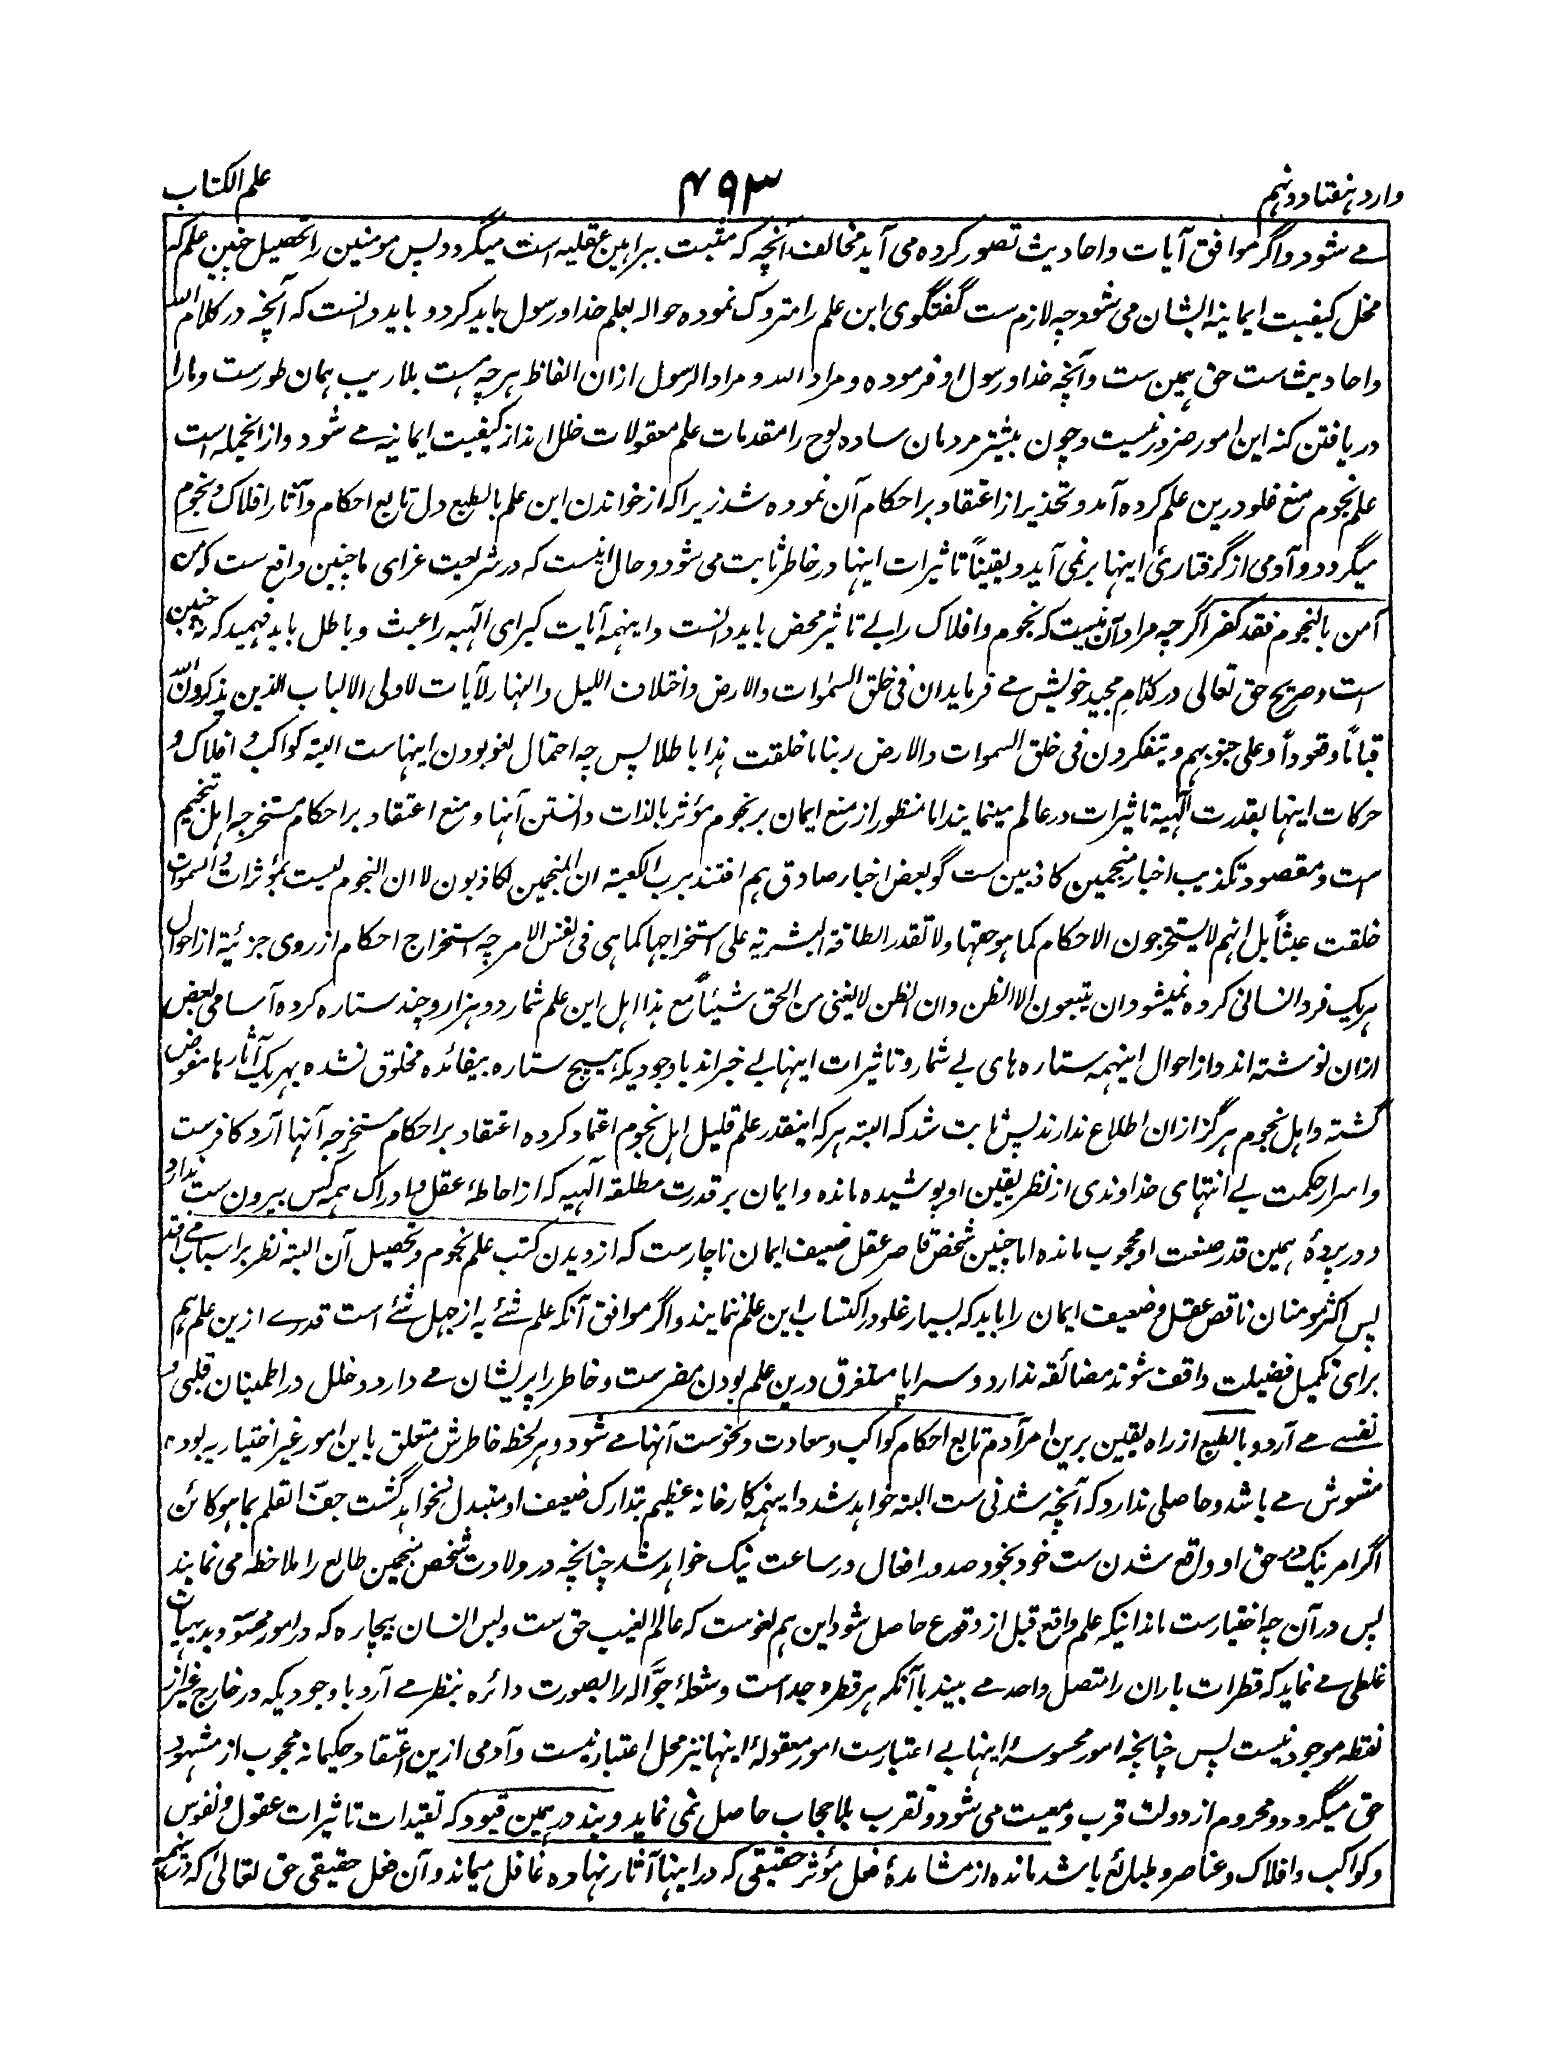 وارد ہفتاد و نہم
۴۹۳
علم الکتاب
مے شود و اگر موافق آیات و احادیث تصور کرده می آید مخالف آنچه که مثبت ببراہین عقلیہ است میگردد پس مومنین را تحصیل چنین علم که
مخل کیفیت ایمانیہ ایشان می شود چہ لازم ست گفتگوی این علم را متروک نموده حوالہ بعلم خدا و رسول باید کرد و باید دانست که آنچه در کلام اللہ
و احادیث ست حق ہمین ست و آنچه خدا و رسول او فرموده و مراد اللہ و مراد الرسول ازان الفاظ ہرچہ ہست بلاریب ہمان طورست و مارا
دریافتن کنہ این امور ضرور نیست و چون بیشتر مردمان ساده لوح را مقدمات علم معقولات خلل انداز کیفیت ایمانیہ مے شود و از انجملہ است
علم نجوم منع غلو درین علم کرده آمد و تحذیر از اعتقاد بر احکام آن نموده شد زیراکہ از خواندن این علم بالطبع دل تابع احکام و آثار افلاک و نجوم
میگردد و آدمی از گرفتاریٔ اینہا برنمی آید و یقیناً تاثیرات اینہا در خاطر ثابت می شود و حال اینست که در شریعت غرای ما چنین واقع ست که من
آمن بالنجوم فقد کفر اگرچہ مراد آن نیست که نجوم و افلاک را بے تاثیر محض باید دانست و اینہمہ آیات کبرای الٰہیہ را عبث و باطل باید فہمید که چنین
است و صریح حق تعالی در کلام مجید خویش مے فرماید ان فی خلق السمٰوات والارض واختلاف اللیل والنہار لآیات لاولی الالباب الذین یذکرون اللہ
قیاماً وقعوداً وعلی جنوبہم ویتفکرون فی خلق السموات والارض ربنا ما خلقت ہذا باطلا پس چہ احتمال لغو بودن اینہاست البتہ کواکب و افلاک و
حرکات اینہا بقدرت الٰہیہ تاثیرات در عالم مینمایند اما منظور از منع ایمان بر نجوم مؤثر بالذات دانستن آنہا و منع اعتقاد بر احکام مستخرجہ اہل تنجیم
است و مقصود تکذیب اخبار منجمین کاذبین ست گو بعض اخبار صادق ہم افتند برب الکعبة ان المنجمین لکاذبون لا ان النجوم لیست بمؤثرات والسموات
خلقت عبثاً بل انہم لا یستخرجون الاحکام کما ہو حقہا ولا تقدر الطاقة البشریة علی استخراجہا کما ہی فی نفس الامر چہ استخراج احکام از روی جزئیہ از احوال
ہریک فرد انسانی کرده نمیشود ان یتبعون الا الظن وان الظن لا یغنی من الحق شیئاً مع ہذا اہل این علم شمار دو ہزار و چند ستاره کرده آسامی بعض
ازان نوشتہ اند و از احوال اینہمہ ستاره ہای بے شمار و تاثیرات اینہا بے خبر اند باوجودیکہ ہیچ ستاره بیفائده مخلوق نشده بہریک آثارہا مفوض
گشتہ و اہل نجوم ہرگز ازان اطلاع ندارند پس ثابت شد که البتہ ہرکہ اینقدر علم قلیل اہل نجوم اعتماد کرده اعتقاد بر احکام مستخرجہ آنہا آرد کافرست
و اسرار حکمت بے انتہای خداوندی از نظر یقین او پوشیده مانده و ایمان بر قدرت مطلقہ الٰہیہ که از احاطۂ عقل و ادراک ہمہ کس بیرون ست ندارد
و در پردۂ ہمین قدر صنعت او محجوب مانده اما چنین شخص قاصر عقل ضعیف ایمان ناچارست که از دیدن کتب علم نجوم و تحصیل آن البتہ نظر بر اسباب مے افتد
پس اکثر مومنان ناقص عقل و ضعیف ایمان را باید که بسیار غلو در اکتساب این علم ننمایند و اگر موافق آنکہ علم شئے بہ از جہل شئے است قدرے ازین علم ہم
برای تکمیل فضیلت واقف شوند مضائقہ ندارد و سراپا مستغرق درین علم بودن مضرست و خاطر را پریشان مے دارد و خلل در اطمینان قلبی و
نفسے مے آرد و بالطبع از راه یقین برین امر آدم تابع احکام کواکب و سعادت و نحوست آنہا مے شود و ہر لحظہ خاطرش متعلق باین امور غیر اختیاریہ بوده
مشوش مے باشد و حاصلی ندارد که آنچه شدنی ست البتہ خواہد شد و اینہمہ کارخانہ عظیم بتدارک ضعیف او متبدل نخواہد گشت جفّ القلم بما ہو کائن
اگر امر نیک در حق او واقع شدن ست خود بخود صدور افعال در ساعت نیک خواہد شد چنانچہ در ولادت شخص منجمین طالع را ملاحظہ می نمایند
پس در آن چہ اختیارست ماند اینکہ علم واقع قبل از وقوع حاصل شود این ہم لغوست که عالم الغیب حق ست و بس انسان بیچاره که در امور محسوسہ و بدیہیات
غلطی مے نماید که قطرات باران را متصل واحد مے بیند باآنکہ ہر قطره جداست و شعلۂ جوّالہ را بصورت دائره بنظر مے آرد باوجودیکہ در خارج غیر از
نقطہ موجود نیست پس چنانچہ امور محسوسۂ اینہا بے اعتبارست امور معقولۂ اینہا نیز محل اعتبار نیست و آدمی ازین اعتقاد حکیمانہ محجوب از مشہود
حق میگردد و محروم از دولت قرب و معیت می شود و تقرب بلا حجاب حاصل نمی نماید و بند در ہمین قیود که تقیدات تاثیرات عقول و نفوس
و کواکب و افلاک و عناصر و طبائع باشد مانده از مشاہدۂ فعل مؤثر حقیقی که در اینہا آثار نہاده غافل میماند و آن فعل حقیقی حق تعالیٰ که